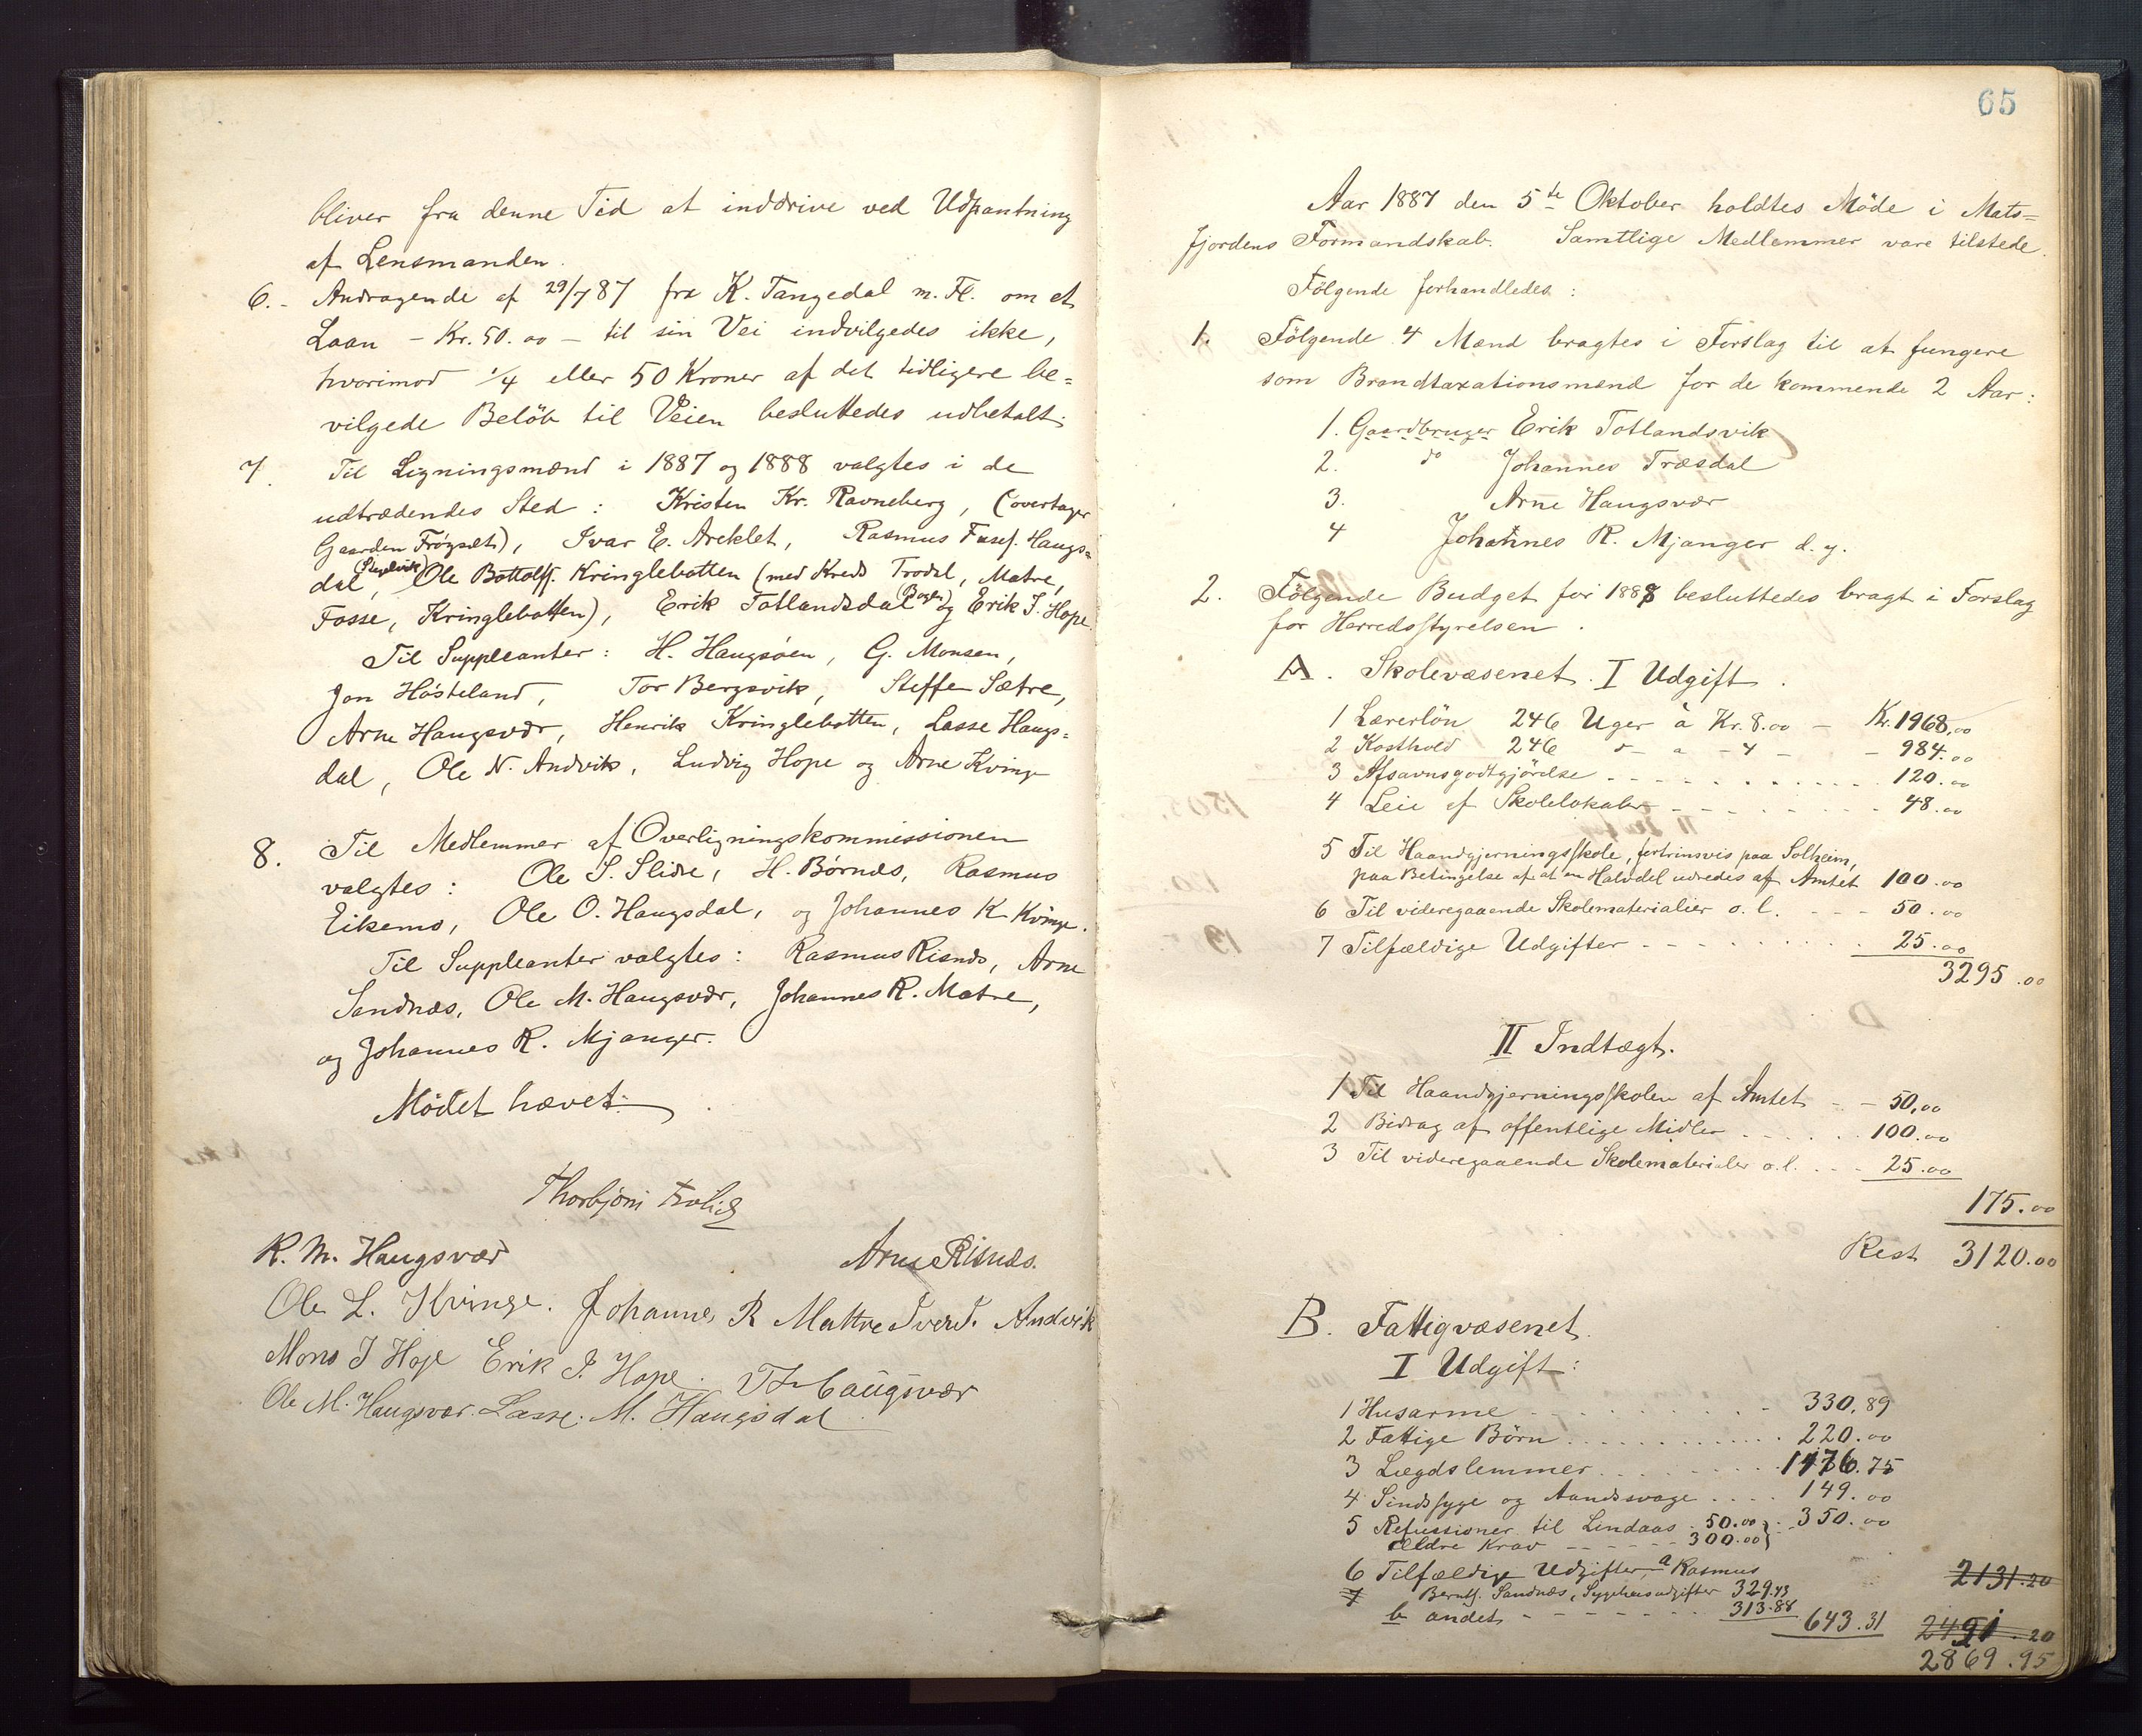 bliver fra denne Tid at inddrive ved Udpantning
af Lensmanden.
6. - Andragende af 29/7 87 fra K. Tangedal m. Fl. om et
Laan - Kr. 50.00 - til sin Vei indvilgedes ikke,
hvorimod 1/4 eller 50 Kroner af det tidligere be=
vilgede Beløb til Veien besluttedes udbetalt.
7. Til Ligningsmænd i 1887 og 1888 valgtes i de
udtrædendes Sted: Kristen Kr. Ravneberg, (overtager
Gaarden Frøyset), Ivar E. Areklet, Rasmus Haugs=
dal, Ole Bottolfs. Kringlebotten (med Kreds Trodal, Matre,
Fosse, Kringlebotten), Erik Totlandsdal (Bogen) og Erik J. Hope.
Til Suppleanter: H. Haugsøen, G. Monsen,
Jon Høsteland, Tor Bergsvik, Steffen Sætre,
Arne Haugsvær, Henrik Kringlebotten, Lasse Haugs=
dal, Ole N. Andvik, Ludvig Hope og Arne Kvinge
8. Til Medlemmer af Overligningskommissionen
valgtes: Ole S. Slire, H. Børnes, Rasmus
Eikemo, Ole O. Haugsdal, og Johannes K. Kvinge.
Til Suppleanter valgtes: Rasmus Risnes, Arne
Sandnæs, Ole M. Haugsvær, Johannes R. Matre,
og Johannes R. Mjanger.
Mødet hævet.
Thorbjørn
R. M. Haugsvær Arne Risnes.
Ole L. Kvinge. Johannes R Mattre Iver J. Andvik
Mons J Hope Erik J. Hope. Haugsvær
Ole M. Haugsvær. Lasse. M. Haugsdal
65
Aar 1887 den 5te Oktober holdtes Møde i Mats=
fjordens Formandskab. Samtlige Medlemmer vare tilstede.
Følgende forhandledes:
1. Følgende 4 Mænd bragtes i Forslag til at fungere
som Brandtaxationsmænd for de kommende 2 Aar:
1. Gaardbruger Erik Totlandsvik
2. do Johannes Træsdal
3. Arne Haugsvær
4 Johannes R. Mjanger d. y.
2. Følgende Budget for 1888 besluttedes bragt i Forslag
for Herredsstyrelsen.
A. Skolevæsenet. I Udgift.
1 Lærerløn 246 Uger à Kr. 8.00 - Kr. 1968,00
2 Kosthold 246 - a - 4 - - 984.00
3 Afsavnsgodtgjørelse 120.00
4 Leie af Skolelokaler 48.00
5 Til Haandgjerningsskole, fortrinsvis paa Solheim,
paa Betingelse af at en Halvdel udredes af Amtet 100.00
6 Til videregaaende Skolematerialier o. l. 50.00
7 Tilfældige Udgifter 25.00
3295.00
II Indtægt.
1 Til Haandgjerningsskolen af Amtet - - 50,00
2 Bidrag af offentlige Midler 100.00
3 Til videregaaende Skolematerialer o. l. 25.00
175.00
Rest 3120.00
B. Fattigvæsenet.
I Udgift:
1 Husarme 330,89
2 Fattige Børn 220.00
3 Lægdslemmer 1176.75
4 Sindssyge og Aandssvage 149.00
5 Refusioner til Lindaas 50.00 350.00
Ældre Krav 300.00
6 Tilfældige Udgifter a Rasmus 2131.20
7 Bernts. Sandnæs, Sygehusudgifter 329.43
b andet 313.88 643.31 2491.20
2869.95